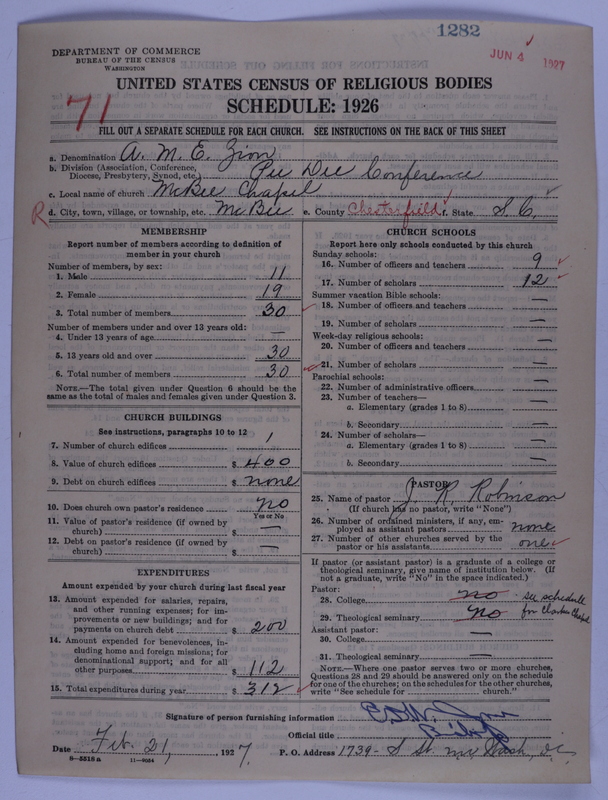 1282
JUN 4 1927
DEPARTMENT OF COMMERCE
BUREAU OF THE CENSUS
WASHINGTON
UNITED STATES CENSUS OF RELIGIOUS BODIES
SCHEDULE: 1926
71
FILL OUT A SEPARATE SCHEDULE FOR EACH CHURCH. SEE INSTRUCTIONS ON THE BACK OF THIS SHEET
a. Denomination A. M. E. Zion
b. Division (Association, Conference, Diocese, Presbytery, Synod, etc.) Pee Dee Conference
c. Local name of church McBee Chapel
R d. City, town, village, or township, etc. McBee e. County Chesterfield f. State S. C.
MEMBERSHIP
Report number of members according to definition of member in your church
Number of members, by sex:
1. Male 11
2. Female 19
3. Total number of members 30
Number of members under and over 13 years old:
4. Under 13 years of age —
5. 13 years old and over 30
6. Total number of members 30
NOTE.—The total given under Question 6 should be the same as the total of males and females given under Question 3.
CHURCH BUILDINGS
See instructions, paragraphs 10 to 12
7. Number of church edifices 1
8. Value of church edifices $ 400
9. Debt on church edifices $ none
10. Does church own pastor's residence no
Yes or No
11. Value of pastor's residence (if owned by church) $ —
12. Debt on pastor's residence (if owned by church) $ —
EXPENDITURES
Amount expended by your church during last fiscal year
13. Amount expended for salaries, repairs, and other running expenses; for improvements or new buildings; and for payments on church debt $ 200
14. Amount expended for benevolences, including home and foreign missions; for denominational support; and for all other purposes $ 112
15. Total expenditures during year $ 312
CHURCH SCHOOLS
Report here only schools conducted by this church
Sunday schools:
16. Number of officers and teachers 9
17. Number of scholars 12
Summer vacation Bible schools:
18. Number of officers and teachers —
19. Number of scholars —
Week-day religious schools:
20. Number of officers and teachers —
21. Number of scholars —
Parochial schools:
22. Number of administrative officers —
23. Number of teachers—
a. Elementary (grades 1 to 8) —
b. Secondary —
24. Number of scholars—
a. Elementary (grades 1 to 8) —
b. Secondary —
PASTOR
25. Name of pastor J. R. Robinson
(If church has no pastor, write "None")
26. Number of ordained ministers, if any, employed as assistant pastors none
27. Number of other churches served by the pastor or his assistants one
If pastor (or assistant pastor) is a graduate of a college or theological seminary, give name of institution below. (If not a graduate, write "No" in the space indicated.)
Pastor:
28. College no - see schedule
29. Theological seminary no for Chapel
Assistant pastor:
30. College —
31. Theological seminary —
NOTE.—Where one pastor serves two or more churches, Questions 28 and 29 should be answered only on the schedule for one of the churches; on the schedules for the other churches, write "See schedule for church."
Signature of person furnishing information E.D.W. Jones
Official title Bishop
Date Feb. 21, 1927. P. O. Address 1739 - S St. NW Wash, DC
8—5518a 11—9054